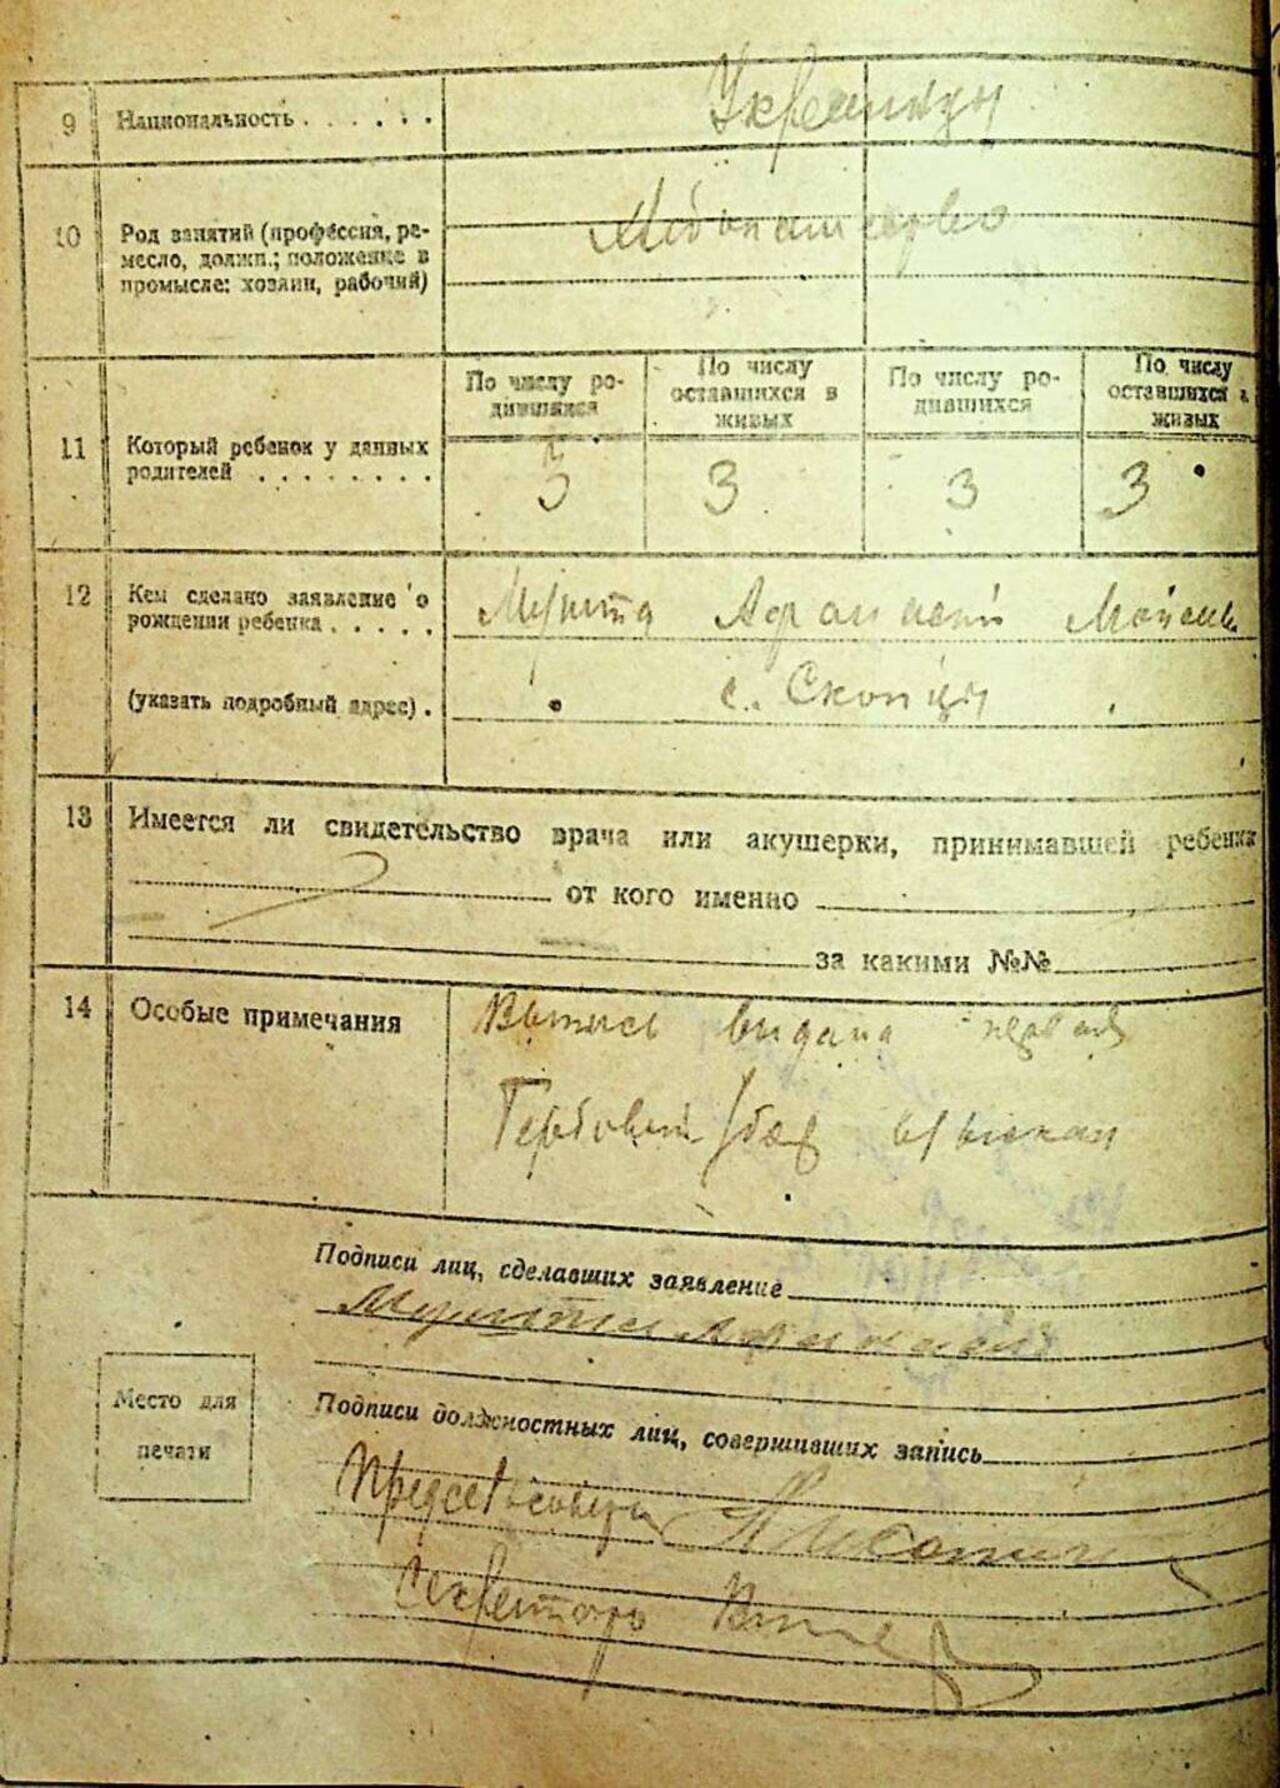 9 Национальность . . . . . . Украинцы
10 Род занятий (профессия, ре-
месло, должн.; положение в
промысле: хозяин, рабочий)
По числу ро-
дившихся
По числу
оставшихся в
живых
По числу ро-
дившихся
По числу
оставшихся в
живых
11 Который ребенок у данных
родителей . . . . . . . . 3 3 3 3
12 Кем сделано заявление о
рождении ребенка . . . . . Афанасий
(указать подробный адрес) . с. Скопцы
13 Имеется ли свидетельство врача или акушерки, принимавшей ребенка
от кого именно
за какими №№
14 Особые примечания
Выпись видана
Гербовый сбор взыскан
Подписи лиц, сделавших заявление
Место для
печати
Подписи должностных лиц, совершивших запись
Председатель
Секретарь